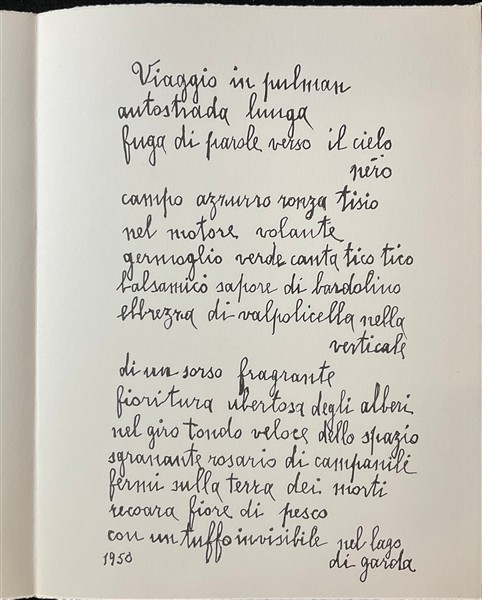 Viaggio in pulman
autostrada lunga
fuga di parole verso il cielo
nero
campo azzurro ronza tisio
nel motore volante
germoglio verde canta tico tico
balsamico sapore di bardolino
ebbrezza di valpolicella nella
verticale
di un sorso fragrante
fioritura ubertosa degli alberi
nel giro tondo veloce dello spazio
sgranante rosario di campanili
fermi sulla terra dei morti
recoara fiore di pesco
con un tuffo invisibile nel lago
di garda
1950